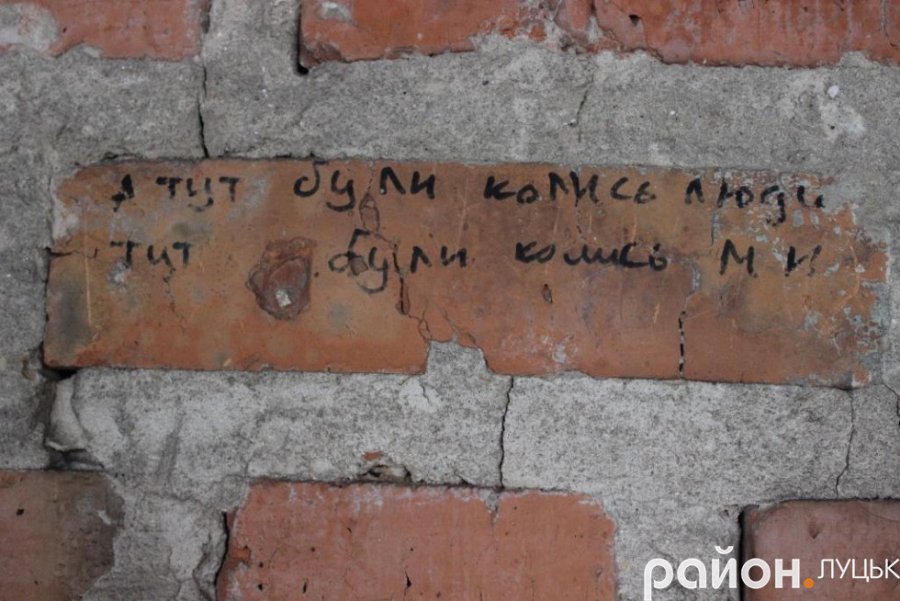 А тут були колись люди
тут були колись ми
район.луцьк